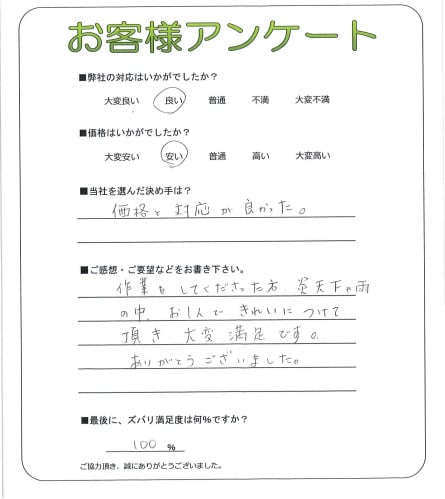 お客様アンケート
■弊社の対応はいかがでしたか？
大変良い 良い 普通 不満 大変不満
■価格はいかがでしたか？
大変安い 安い 普通 高い 大変高い
■当社を選んだ決め手は？
価格と対応が良かった。
■ご感想・ご要望などをお書き下さい。
作業をしてくださった方、炎天下や雨
の中、お1人できれいにつけて
頂き大変満足です。
ありがとうございました。
■最後に、ズバリ満足度は何％ですか？
100 ％
ご協力頂き、誠にありがとうございました。